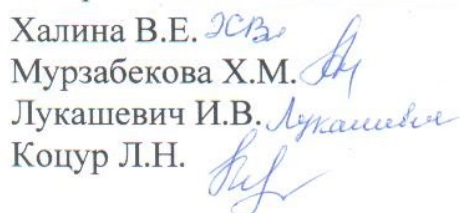 Халина В.Е.
Мурзабекова Х.М.
Лукашевич И.В. Лукашевич
Коцур Л.Н.